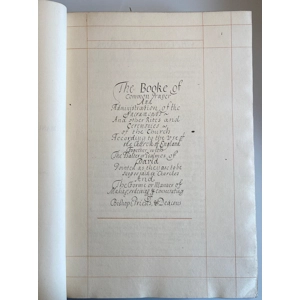 The Booke of
Common Prayer
And
Administration of the
Sacraments
And other Rites and
Ceremonies
of the Church
According to the use of
the Church of England
Together with
The Psalter or Psalmes of
David
Pointed as they are to be
sung or said in Churches
And
The Forme or Manner of
Making ordaining & consecrating
of
Bishops Priests & Deacons